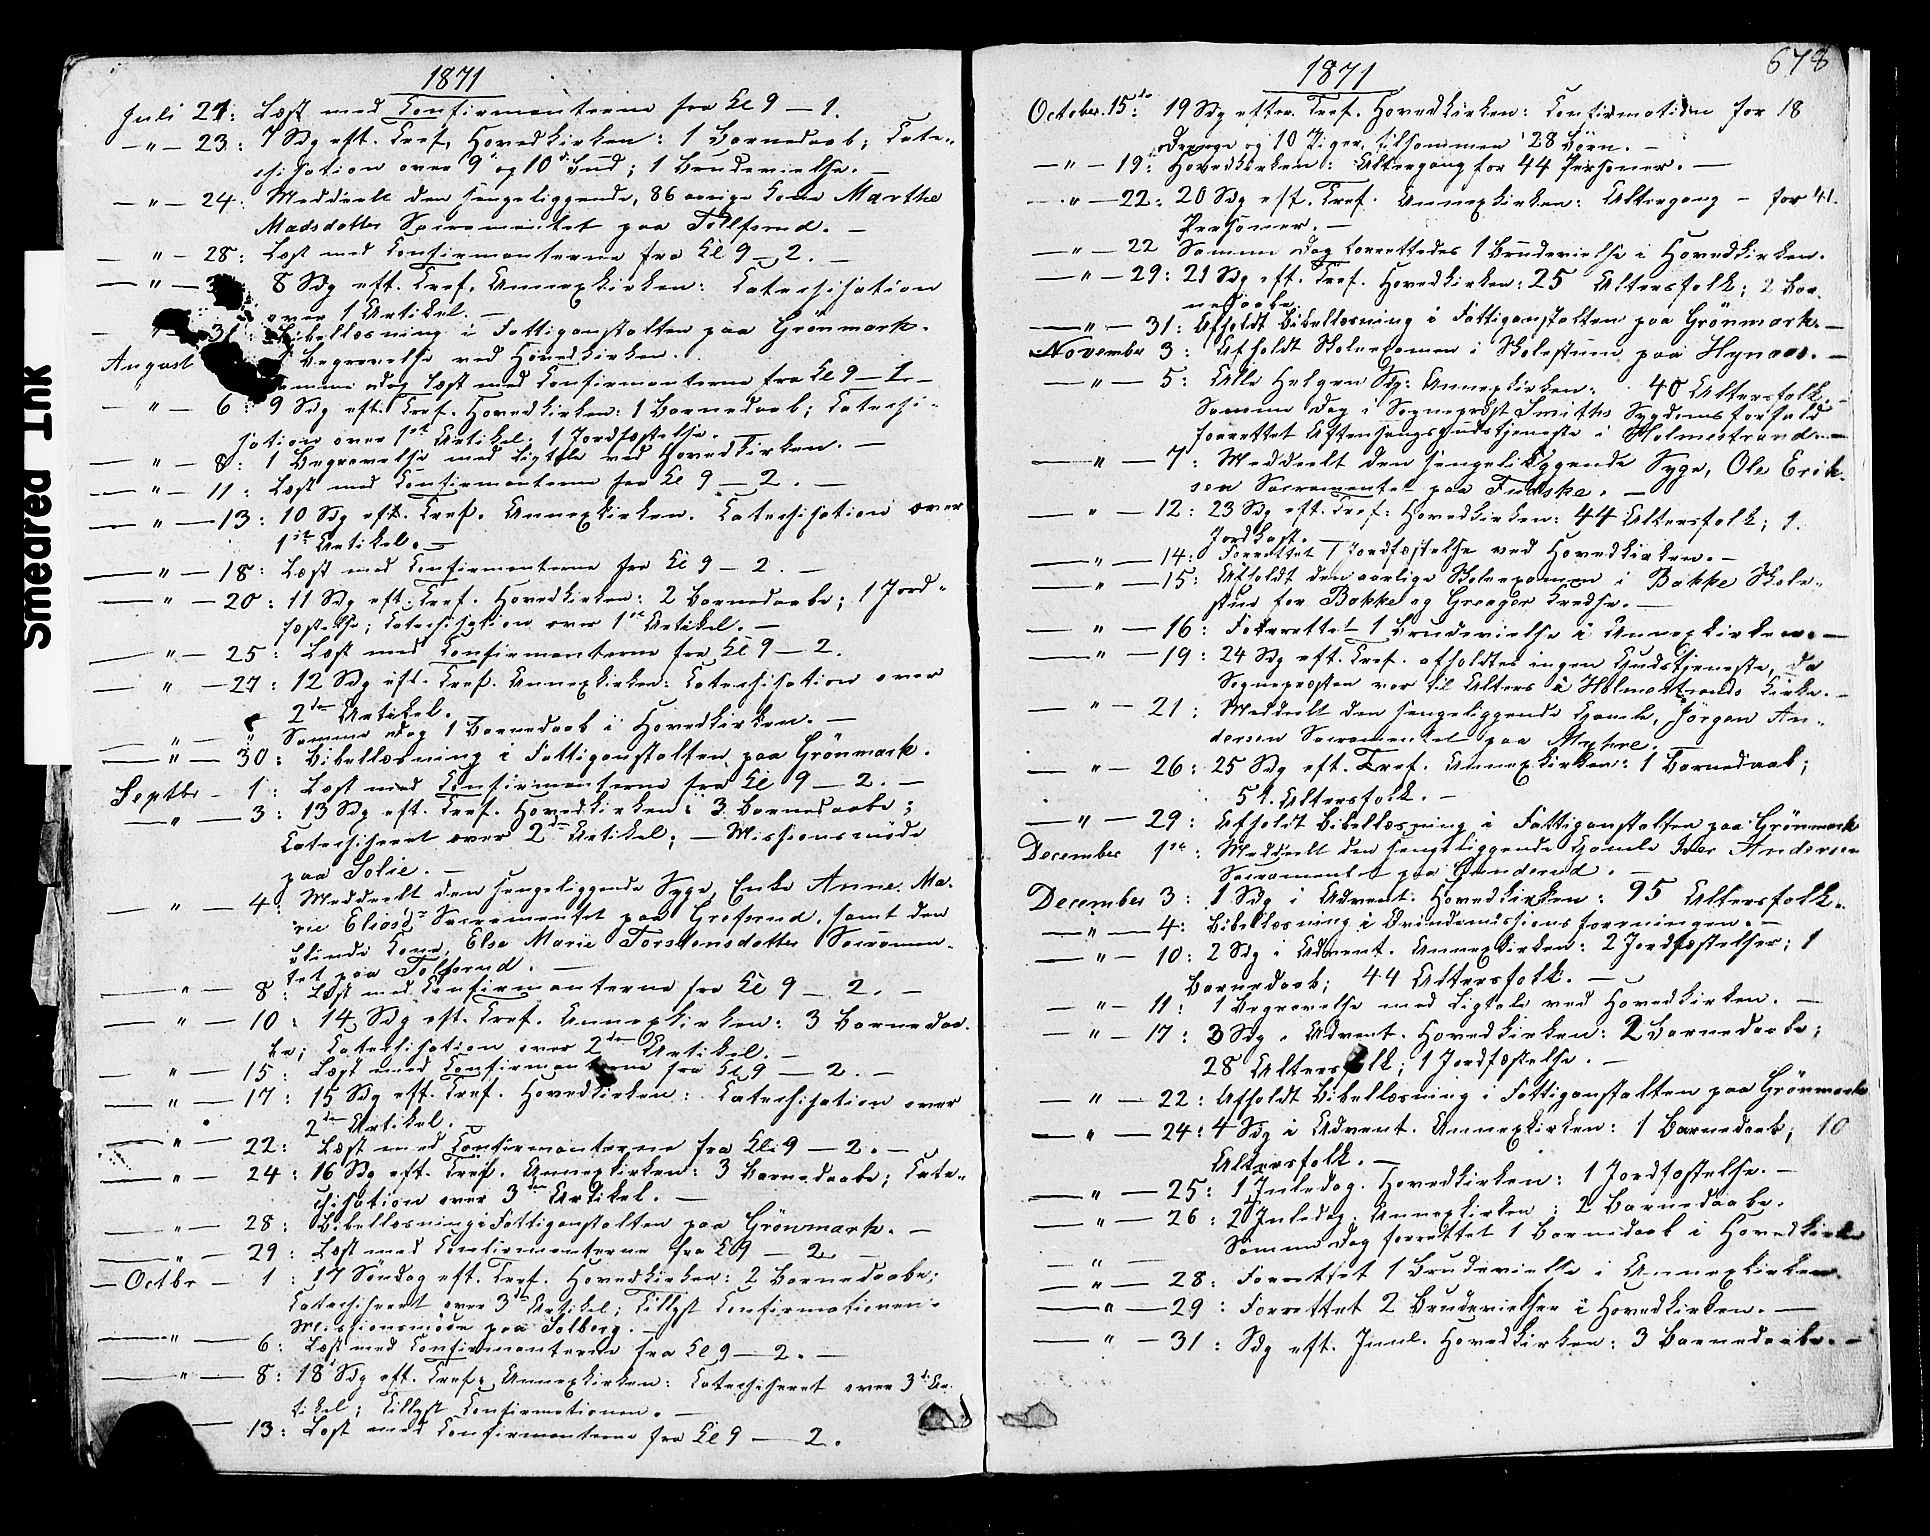 Smedred Ink
1871
Juli 21: Læst med Confirmanterne fra Kl 9 – 1.
– " – 23: 7 Sdg eft. Tref. Hovedkirken: 1 Barnedaab; Cate-
chisation over 9 og 10 Bud; 1 Brudevielse. –
– " – 24: Meddeelt den sengeliggende, 86 aarige Kone Marthe
Madsdatter Sacramentet paa Tolfsrud. –
– " – 28: Læst med Confirmanterne fra Kl 9 – 2. –
– " – 8 Sdg eft. Tref. Annexkirken: Catechisation
over 1 Artikel. –
– " – 31: Bibellæsning i Fattiganstalten paa Grönmark.
August Begravelse ved Hovedkirken.
Samme Dag Læst med Confirmanterne fra Kl 9 – 1. –
– " – 6: 9 Sdg eft. Tref. Hovedkirken: 1 Barnedaab; Catechi-
sation over 1ste Artikel. 1 Jordfæstelse.
– " – 8: 1 Begravelse med Ligtale ved Hovedkirken. –
– " – 11: Læst med Confirmanterne fra Kl 9 – 2. –
– " – 13: 10 Sdg eft. Tref. Annexkirken. Catechisation over
1ste Artikel. –
– " – 18: Læst med Confirmanterne fra Kl 9 – 2. –
– " – 20: 11 Sdg eft. Tref. Hovedkirken: 2 Barnedaabe; 1 Jord-
fæstelse; Catechisation over 1ste Artikel. –
– " – 25: Læst med Confirmanterne fra Kl 9 – 2.
– " – 27: 12 Sdg eft. Tref. Annexkirken: Catechisation over
2den Artikel. –
– " – " Samme Dag 1 Barnedaab i Hovedkirken. –
– " – 30: Bibellæsning i Fattiganstalten paa Grönmark.
Septbr – 1: Læst med Confirmanterne fra Kl 9 – 2. –
– " – 3: 13 Sdg eft. Tref. Hovedkirken: 3 Barnedaabe;
Catechiseret over 2den Artikel; – Missionsmöde
paa Solie. –
– " – 4: Meddeelt den sengeliggende Syge, Enke Anne Ma-
rie Eliasd: Sacramentet paa Grefsrud, samt den
blinde Kone, Else Marie Torstensdatter Sacramen-
tet paa Tolfsrud. –
– " – 8: Læst med Confirmanterne fra Kl 9 – 2. –
– " – 10: 14 Sdg eft. Tref. Annexkirken: 3 Barnedaa-
be; Catechisation over 2den Artikel. –
– " – 15: Læst med Confirmanterne fra Kl 9 – 2. –
– " – 17: 15 Sdg eft. Tref. Hovedkirken: Catechisation over
2den Artikel. –
– " – 22: Læst med Confirmanterne fra Kl. 9 – 2. –
– " – 24: 16 Sdg eft. Tref. Annexkirken: 3 Barnedaabe; Cate-
chisation over 3die Artikel. –
– " – 28: Bibellæsning i Fattiganstalten paa Grönmark. –
– " – 29: Læst med Confirmanterne fra Kl 9 – 2. –
– Octbr – 1: 17 Söndag eft. Tref. Hovedkirken: 2 Barnedaabe;
Catechiseret over 3die Artikel; Tillyst Confirmationen.
Missionsmöde paa Solberg. –
– " – 6: Læst med Confirmanterne fra Kl 9 – 2. –
– " – 8: 18 Sdg eft. Tref. Annexkirken: Catechiseret over 3die Ar-
tikel; Tillyst Confirmationen. –
– 13: Læst med Confirmanterne fra Kl 9 – 2.
678
1871
October 15de: 19 Sdg efter Tref. Hovedkirken: Confirmation for 18
Drenge og 10 Piger, tilsammen 28 Börn. –
– " – 19: Hovedkirken: Altergang for 44 Personer. –
– " – 22: 20 Sdg eft. Tref. Annexkirken: Altergang – for 41.
Personer. –
– " – 22 Samme Dag forrettedes 1 Brudevielse i Hovedkirken.
– " – 29: 21 Sdg eft. Tref. Hovedkirken: 25 Altersfolk; 2 Bar-
nedaabe.
– " – 31: Afholdt Bibellæsning i Fattiganstalten paa Grönmark. –
November 3: Afholdt Skoleexamen i Skolestuen paa Hynaas. –
– " – 5: Alle Helgen Sdg: Annexkirken: 40 Altersfolk. –
Samme Dag i Sognepræst Smiths Sygdomsforfald
forrettet Aftensangsgudstjeneste i Holmestrand. –
– " – 7: Meddeelt den sengeliggende Syge, Ole Erik-
sen Sacramentet paa . –
– " – 12: 23 Sdg eft. Tref: Hovedkirken: 44 Altersfolk; 1.
Jordkast. –
– " – 14: Forrettet 1 Jordfæstelse ved Hovedkirken. –
– " – 15: Afholdt den aarlige Skoleexamen i Bakke Skole-
stue for Bakke og Greager Kredse. –
– " – 16: Forrettet 1 Brudevielse i Annexkirken. –
– " – 19: 24 Sdg eft. Tref. afholdtes ingen Gudstjeneste, da
Sognepræsten var til Alters i Holmestrands Kirke. –
– " – 21: Meddeelt den sengeliggende Gamle, Jörgen An-
dersen Sacramentet paa Myhre. –
– " – 26: 25 Sdg eft. Tref. Annexkirken: 1 Barnedaab;
51. Altersfolk. –
– " – 29: Afholdt Bibellæsning i Fattiganstalten paa Grönmark
December 1ste: Meddeelt den sengeliggende Gamle Iver Andersen
Sacramentet paa . –
December 3: 1 Sdg i Advent: Hovedkirken: 95 Altersfolk. –
– " – 4: Bibellæsning i Qvindemissionsforeningen. –
– " – 10: 2 Sdg i Advent. Annexkirken: 2 Jordfæstelser; 1
Barnedaab; 44 Altersfolk. –
– " – 11: 1 Begravelse med Ligtale ved Hovedkirken. –
– " – 17: 3 Sdg i Advent. Hovedkirken: 2 Barnedaabe;
28 Altersfolk; 1 Jordfæstelse. –
– " – 22: Afholdt Bibellæsning i Fattiganstalten paa Grönmark
– " – 24: 4 Sdg i Advent. Annexkirken: 1 Barnedaab; 10
Altersfolk. –
– " – 25: 1 Juledag. Hovedkirken: 1 Jordfæstelse. –
– " – 26: 2 Juledag. Annexkirken: 2 Barnedaabe.
– " – Samme Dag forrettet 1 Barnedaab i Hovedkirke
– " – 28: Forrettet 1 Brudevielse i Annexkirken.
– " – 29: Forrettet 2 Brudevielser i Hovedkirken. –
– " – 31: Sdg eft. Juul. Hovedkirken: 3 Barnedaabe. –